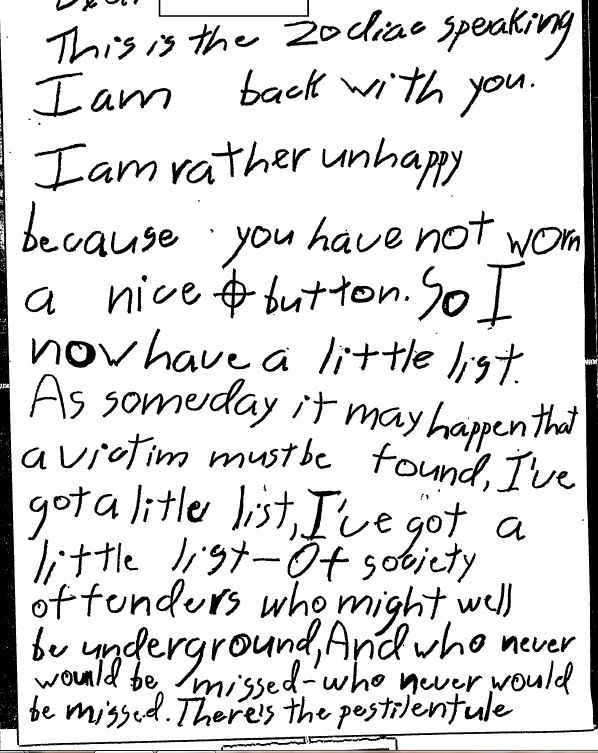 This is the Zodiac speaking
I am back with you.
I am rather unhappy
because you have not worn
a nice ⌖ button. So I
now have a little list.
As someday it may happen that
a victim must be found, I've
got a litle list, I've got a
little list – Of society
offenders who might well
be underground, And who never
would be missed – who never would
be missed. There's the pestilentule